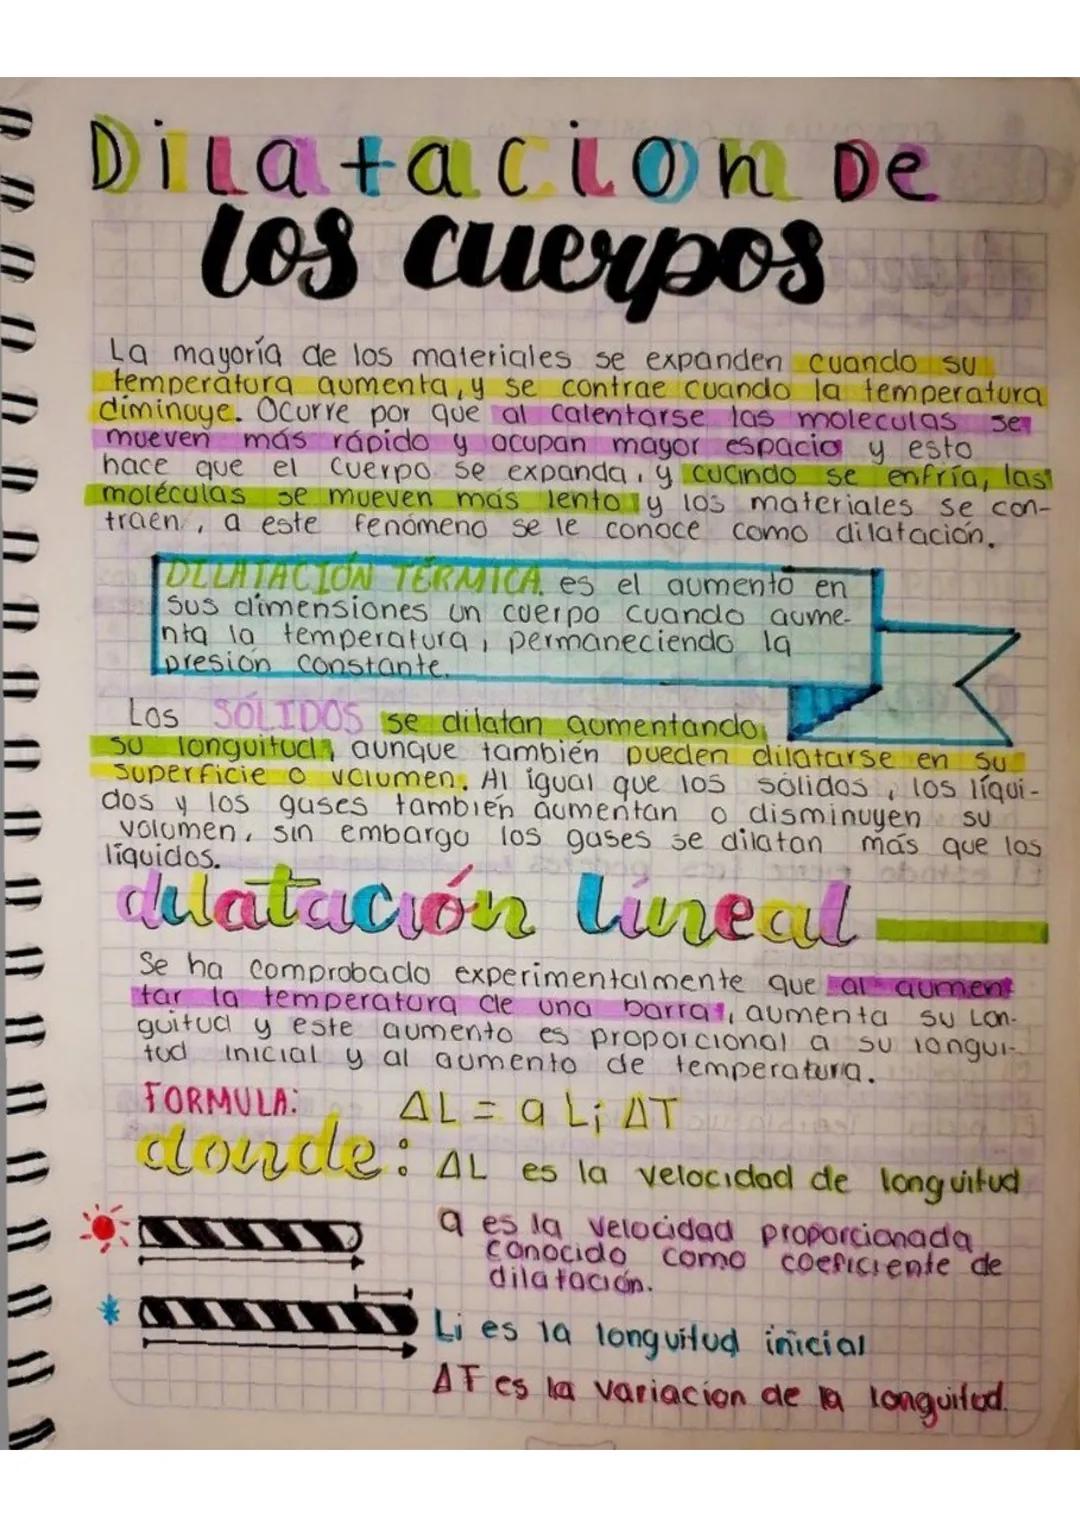 Dilatacion De
los cuerpos
La mayoría de los materiales se expanden cuando su
temperatura aumenta, y se contrae cuando la temperatura
diminuye. Ocurre por que al calentarse las moleculas se
mueven más rápido y ocupan mayor espacio y esto
hace que el cuerpo se expanda, y cuando se enfría, las
moléculas se mueven más lento y los materiales se con-
traen, a este fenómeno se le conoce como dilatación.
DILATACIÓN TÉRMICA. es el aumento en
sus dimensiones un cuerpo cuando aume-
nta la temperatura, permaneciendo la
presión constante.
Los SÓLIDOS se dilatan aumentando
su longuitud, aunque también pueden dilatarse en su
superficie o volumen. Al igual que los sólidos, los líqui-
dos y los gases también aumentan o disminuyen su
volumen, sin embargo los gases se dilatan más que los
líquidos.
dilatación líneal
Se ha comprobado experimentalmente que al aumen
tar la temperatura de una barra, aumenta su Lon-
guitud y este aumento es proporcional a su longui-
tud inicial y al aumento de temperatura.
FORMULA: ΔL = a Li ΔT
donde: ΔL es la velocidad de longuitud
a es la velocidad proporcionada
conocido como coeficiente de
dilatación.
Li es la longuitud inicial
ΔT es la variacion de la longuitud.